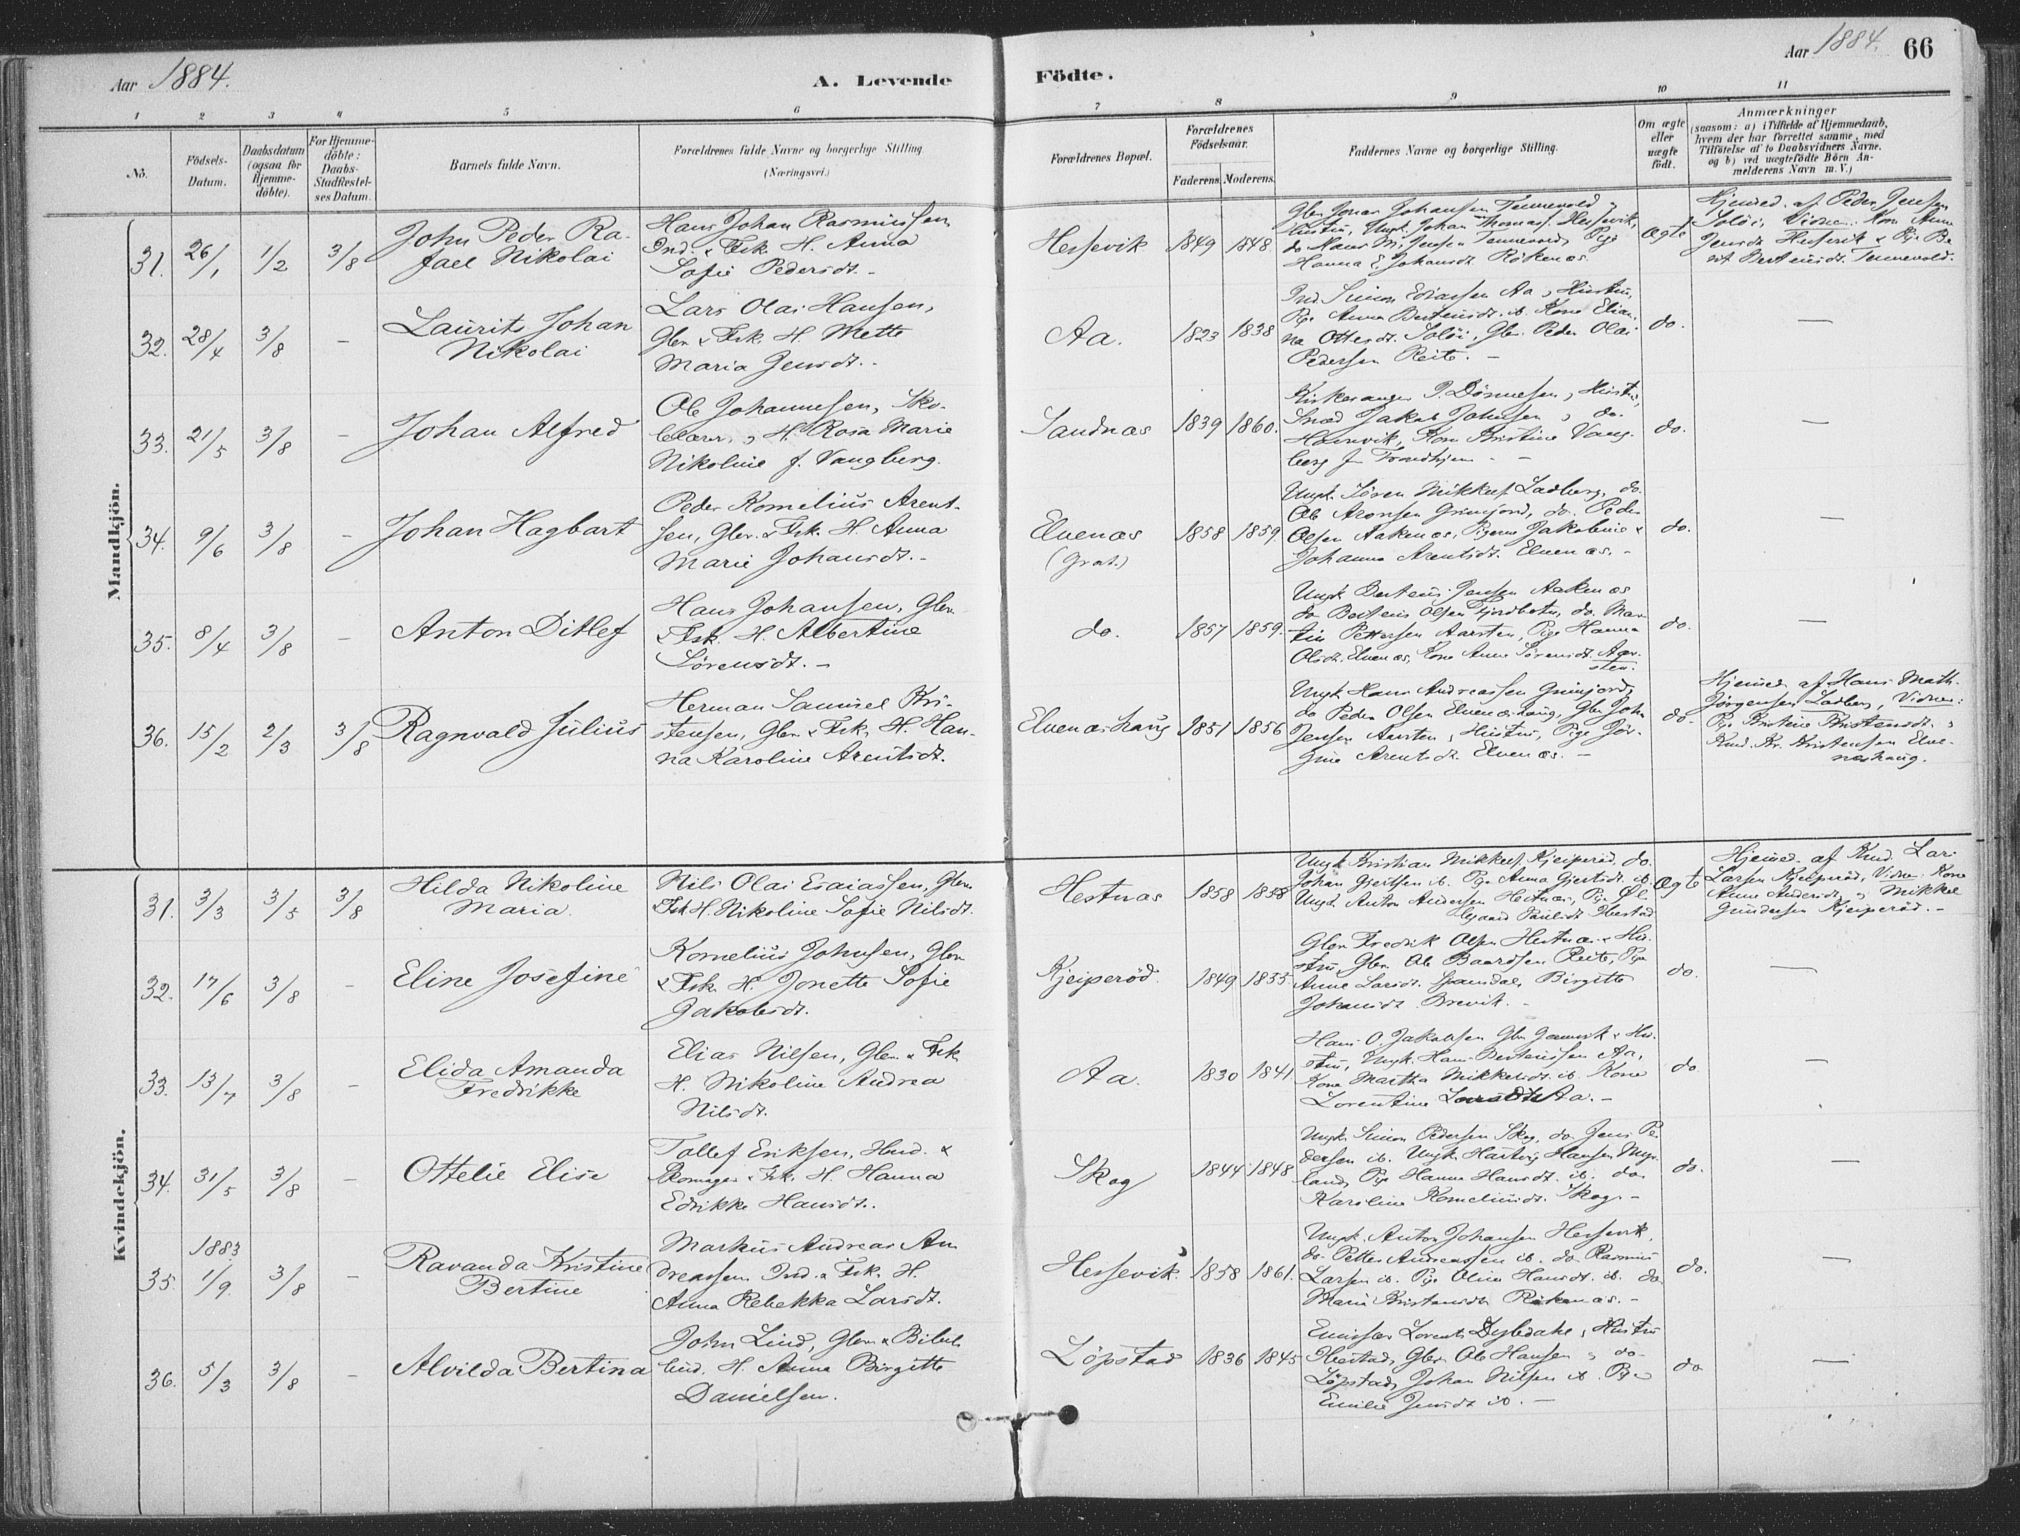 Aar 1884.
A. Levende
Födte.
Aar 1884.
66
1 2 3 4 5 6 7 8 9 10 11
Nò.
Födsels-
Datum.
Daabsdatum
(ogsaa for
Hjemme-
döbte).
For Hjemme-
döbte:
Daabs-
Stadfæstel-
ses Datum.
Barnets fulde Navn.
Forældrenes fulde Navne og borgerlige Stilling
(Næringsvei.)
Forældrenes Bopæl.
Forældrenes
Födselsaar.
Faderens. Moderens.
Faddernes Navne og borgerlige Stilling.
Om ægte
eller
uægte
födt.
Anmærkninger
(saasom: a) i Tilfælde af Hjemmedaab,
hvem der har forrettet samme, med
Tilföielse af to Daabsvidners Navne,
og b) ved uægtefödte Börn An-
melderens Navn m. V.)
Mandkjön.
31. 26/1 1/2 3/8
John Peder Ra-
fael Nikolai
Hans Johan Rasmussen,
Ind. & Fsk. H. Anna
Sofie Pedersdt. -
Hessevik 1849 1848
Gbr. Jonas Johansen Tennevold &
Hustru, Ungk. Johan Thomass. Hessevik,
do Hans M. Jensen Tennevold, Pige
Hanna E. Johansdt. Rökenæs.
Ægte
Hjemmed. af Peder Jensen
Solöi, Vidner: Kone Anne
Jensdt. Hessevik & Pige Be-
rit Berteusdt. Tennevold.
32. 28/4 3/8 -
Laurits Johan
Nikolai
Lars Olai Hansen,
Gbr & Fsk. H. Mette
Maria Jensdt. -
Aa. 1823 1838
Ind. Simon Esiassen Aa & Hustru,
Pige Anna Berteusdt. ib. Kone Elian-
na Ottesdt. Solöi, Gbr. Peder Olai
Pedersen Reite. -
do. -
33. 21/5 3/8 -
Johan Alfred
Ole Johannesen, Sko-
lelærer, & H. Rosa Marie
Nikoline f. Vangberg.
Sandnæs 1839 1860.
Kirkesanger P. Dönnesen & Hustru,
Smed Jakob Johnsen & do.
Havnvik, Kone Kristine Vang-
berg fra Trondhjem. -
do. -
34. 9/6 3/8 -
Johan Hagbart
Peder Kornelius Arent-
sen, Gbr. & Fsk. H. Anna
Marie Johansdt. -
Elvenæs
(Grat.)
1858 1859
Ungk. Sören Mikkels. Ladberg, do.
Ole Aronsen Grimjord, do. Peder
Olsen Aakenæs, Pigerne Jakobine &
Johanna Arentsdt. Elvenæs. -
do. -
35. 8/4 3/8 -
Anton Ditlef
Hans Johansen, Gbr.
& Fsk. H. Albertine
Sörensdt. -
do. 1857 1859.
Ungk. Berteus Jensen Aakenæs
do Berteus Olsen Fjordbotn, do. Mar-
tin Pettersen Aarsten, Pige Hanna
Olsdt. Elvenæs, Kone Anne Sörensdt. Aar-
sten.
do. -
36. 15/2 2/3 3/8
Ragnvald Julius
Herman Samuel Kri-
stensen, Gbr & Fsk. H. Han-
na Karoline Arentsdt.
Elvenæshaug 1851 1856
Ungk. Hans Andreassen Grimjord,
do Peder Olsen Elvenæshaug, Gbr John
Jensen Aarsten & Hustru, Pige Jör-
gine Arentsdt. Elvenæs. -
do.
Hjemmed. af Hans Math.
Jörgensen Ladberg, Vidner:
Pige Kristine Kristensdt. &
Knud Kr. Kristensen Elve-
næshaug.
Kvindekjön.
31. 3/3 3/5 3/8
Hilda Nikoline
Maria.
Nils Olai Esaiassen, Gbr.
Fsk H. Nikoline Sofie Nilsdt.
Hestnæs 1858 1858
Ungk. Kristian Mikkels. Kjeiperöd, do.
Johan Gjertsen ib. Pige Anna Gjertsdt. ib
Ungk. Anton Andersen Hestnæs, Pige Öl-
legaard Paulsdt. Ibestad
Ægte
Hjemmed. af Knud Lars
Larsen Kjeiperöd, Vidner: Kone
Anne Andersdt. & Mikkel
Gundersen Kjeiperöd. -
32. 17/6 3/8 -
Eline Josefine
Kornelius Johnsen, Gbr
& Fsk. H. Jonette Sofie
Jakobsdt.
Kjeiperöd. 1849 1855.
Gbr Fredrik Olsen Hestnæs & Hu-
stru, Gbr. Ole Baardsen Reite, Pige
Anne Larsdt. Spansdal, Birgitte
Johansdt. Brevik. -
do. -
33. 13/7 3/8 -
Elida Amanda
Fredrikke
Elias Nilsen, Gbr & Fsk
H. Nikoline Andrea
Nilsdt.
Aa. 1830 1841
Hans O. Jakobsen Gbr Gamvik & Hu-
stru, Ungk. Hans Berteussen Aa,
Kone Martha Mikkelsdt. ib. Kone
Lorentine Larsdt. Aa. -
do. -
34. 31/5 3/8 -
Ottelie Elise
Tollef Eriksen, Hmd. &
Skomager & Fsk. H. Hanna
Edrikke Hansdt.
Skog 1844 1848
Ungk. Simon Pedersen Skog, do. Jens Pe-
dersen ib. Ungk. Hartvig Hansen Myr-
land, Pige Hanna Hansdt. ib. do.
Karoline Korneliusdt. Skog. -
do. -
35. 1883 1/9 3/8 -
Ravanda Kristine
Bertine
Markus Andreas An-
dreassen, Ind. & Fsk. H.
Anna Rebekka Larsdt.
Hessevik 1858 1861.
Ungk. Anton Johansen Hessevik,
do. Petter Andreassen ib. do Rasmus
Larsen ib. Pige Olina Hansdt. ib. do
Maria Kristensdt. Rökenæs. -
do. -
36. 5/3 3/8 -
Alvilda Bertina
John Lind, Gbr & Bibel-
bud. H. Anna Birgitte
Danielsen.
Löpstad 1836 1845
Emissær Lorents Dybdahl & Hustru
Ibestad, Gbr Ole Hansen & do.
Löpstad, Johan Nilsen ib. Pige
Emilie Jensdt. ib. -
do -